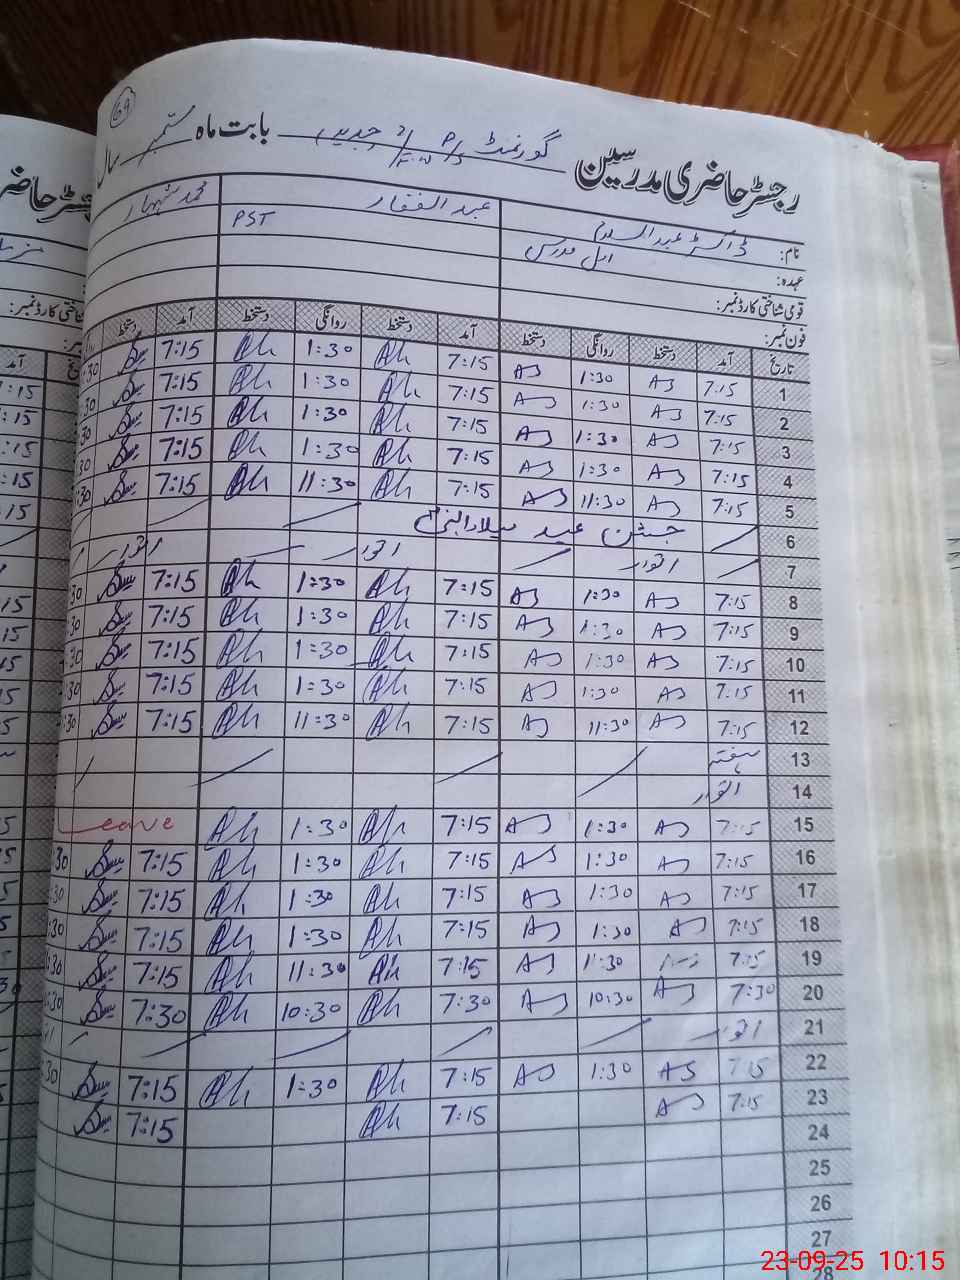 69
رجسٹر حاضری مدرسین گورنمنٹ P/S بابت ماہ ستمبر سال
نام: ڈاکٹر عبدالسلام عبدالغفار محمد شہباز
عہدہ: PST
قومی شناختی کارڈ نمبر:
فون نمبر:
تاریخ آمد دستخط روانگی دستخط آمد دستخط روانگی دستخط آمد دستخط
1 7:15 AS 1:30 AS 7:15 Ah 1:30 Ah 7:15
2 7:15 AS 1:30 AS 7:15 Ah 1:30 Ah 7:15
3 7:15 AS 1:30 AS 7:15 Ah 1:30 Ah 7:15
4 7:15 AS 1:30 AS 7:15 Ah 1:30 Ah 7:15
5 7:15 AS 11:30 AS 7:15 Ah 11:30 Ah 7:15
6 جشن عید میلادالنبیؐ
7 اتوار اتوار اتوار
8 7:15 AS 1:30 AS 7:15 Ah 1:30 Ah 7:15
9 7:15 AS 1:30 AS 7:15 Ah 1:30 Ah 7:15
10 7:15 AS 1:30 AS 7:15 Ah 1:30 Ah 7:15
11 7:15 AS 1:30 AS 7:15 Ah 1:30 Ah 7:15
12 7:15 AS 11:30 AS 7:15 Ah 11:30 Ah 7:15
13 ہفتہ
14 اتوار
15 7:15 AS 1:30 AS 7:15 Ah 1:30 Ah Leave
16 7:15 AS 1:30 AS 7:15 Ah 1:30 Ah 7:15
17 7:15 AS 1:30 AS 7:15 Ah 1:30 Ah 7:15
18 7:15 AS 1:30 AS 7:15 Ah 1:30 Ah 7:15
19 7:15 11:30 AS 7:15 Ah 11:30 Ah 7:15
20 7:30 AS 10:30 AS 7:30 Ah 10:30 Ah 7:30
21 اتوار
22 7:15 AS 1:30 AS 7:15 Ah 1:30 Ah 7:15
23 7:15 AS 7:15 Ah 7:15
24
25
26
27
28
23-09-25 10:15